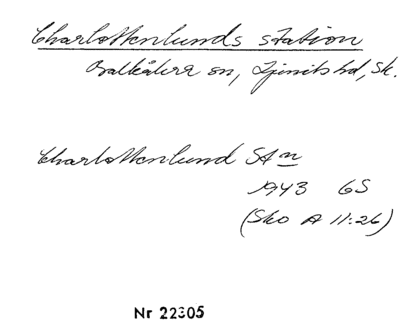 Charlottenlunds station
Balkåkra sn, Ljunits hd, Sk.
Charlottenlund Stn
1943 GS
(Sko A 11:26)
Nr 22305